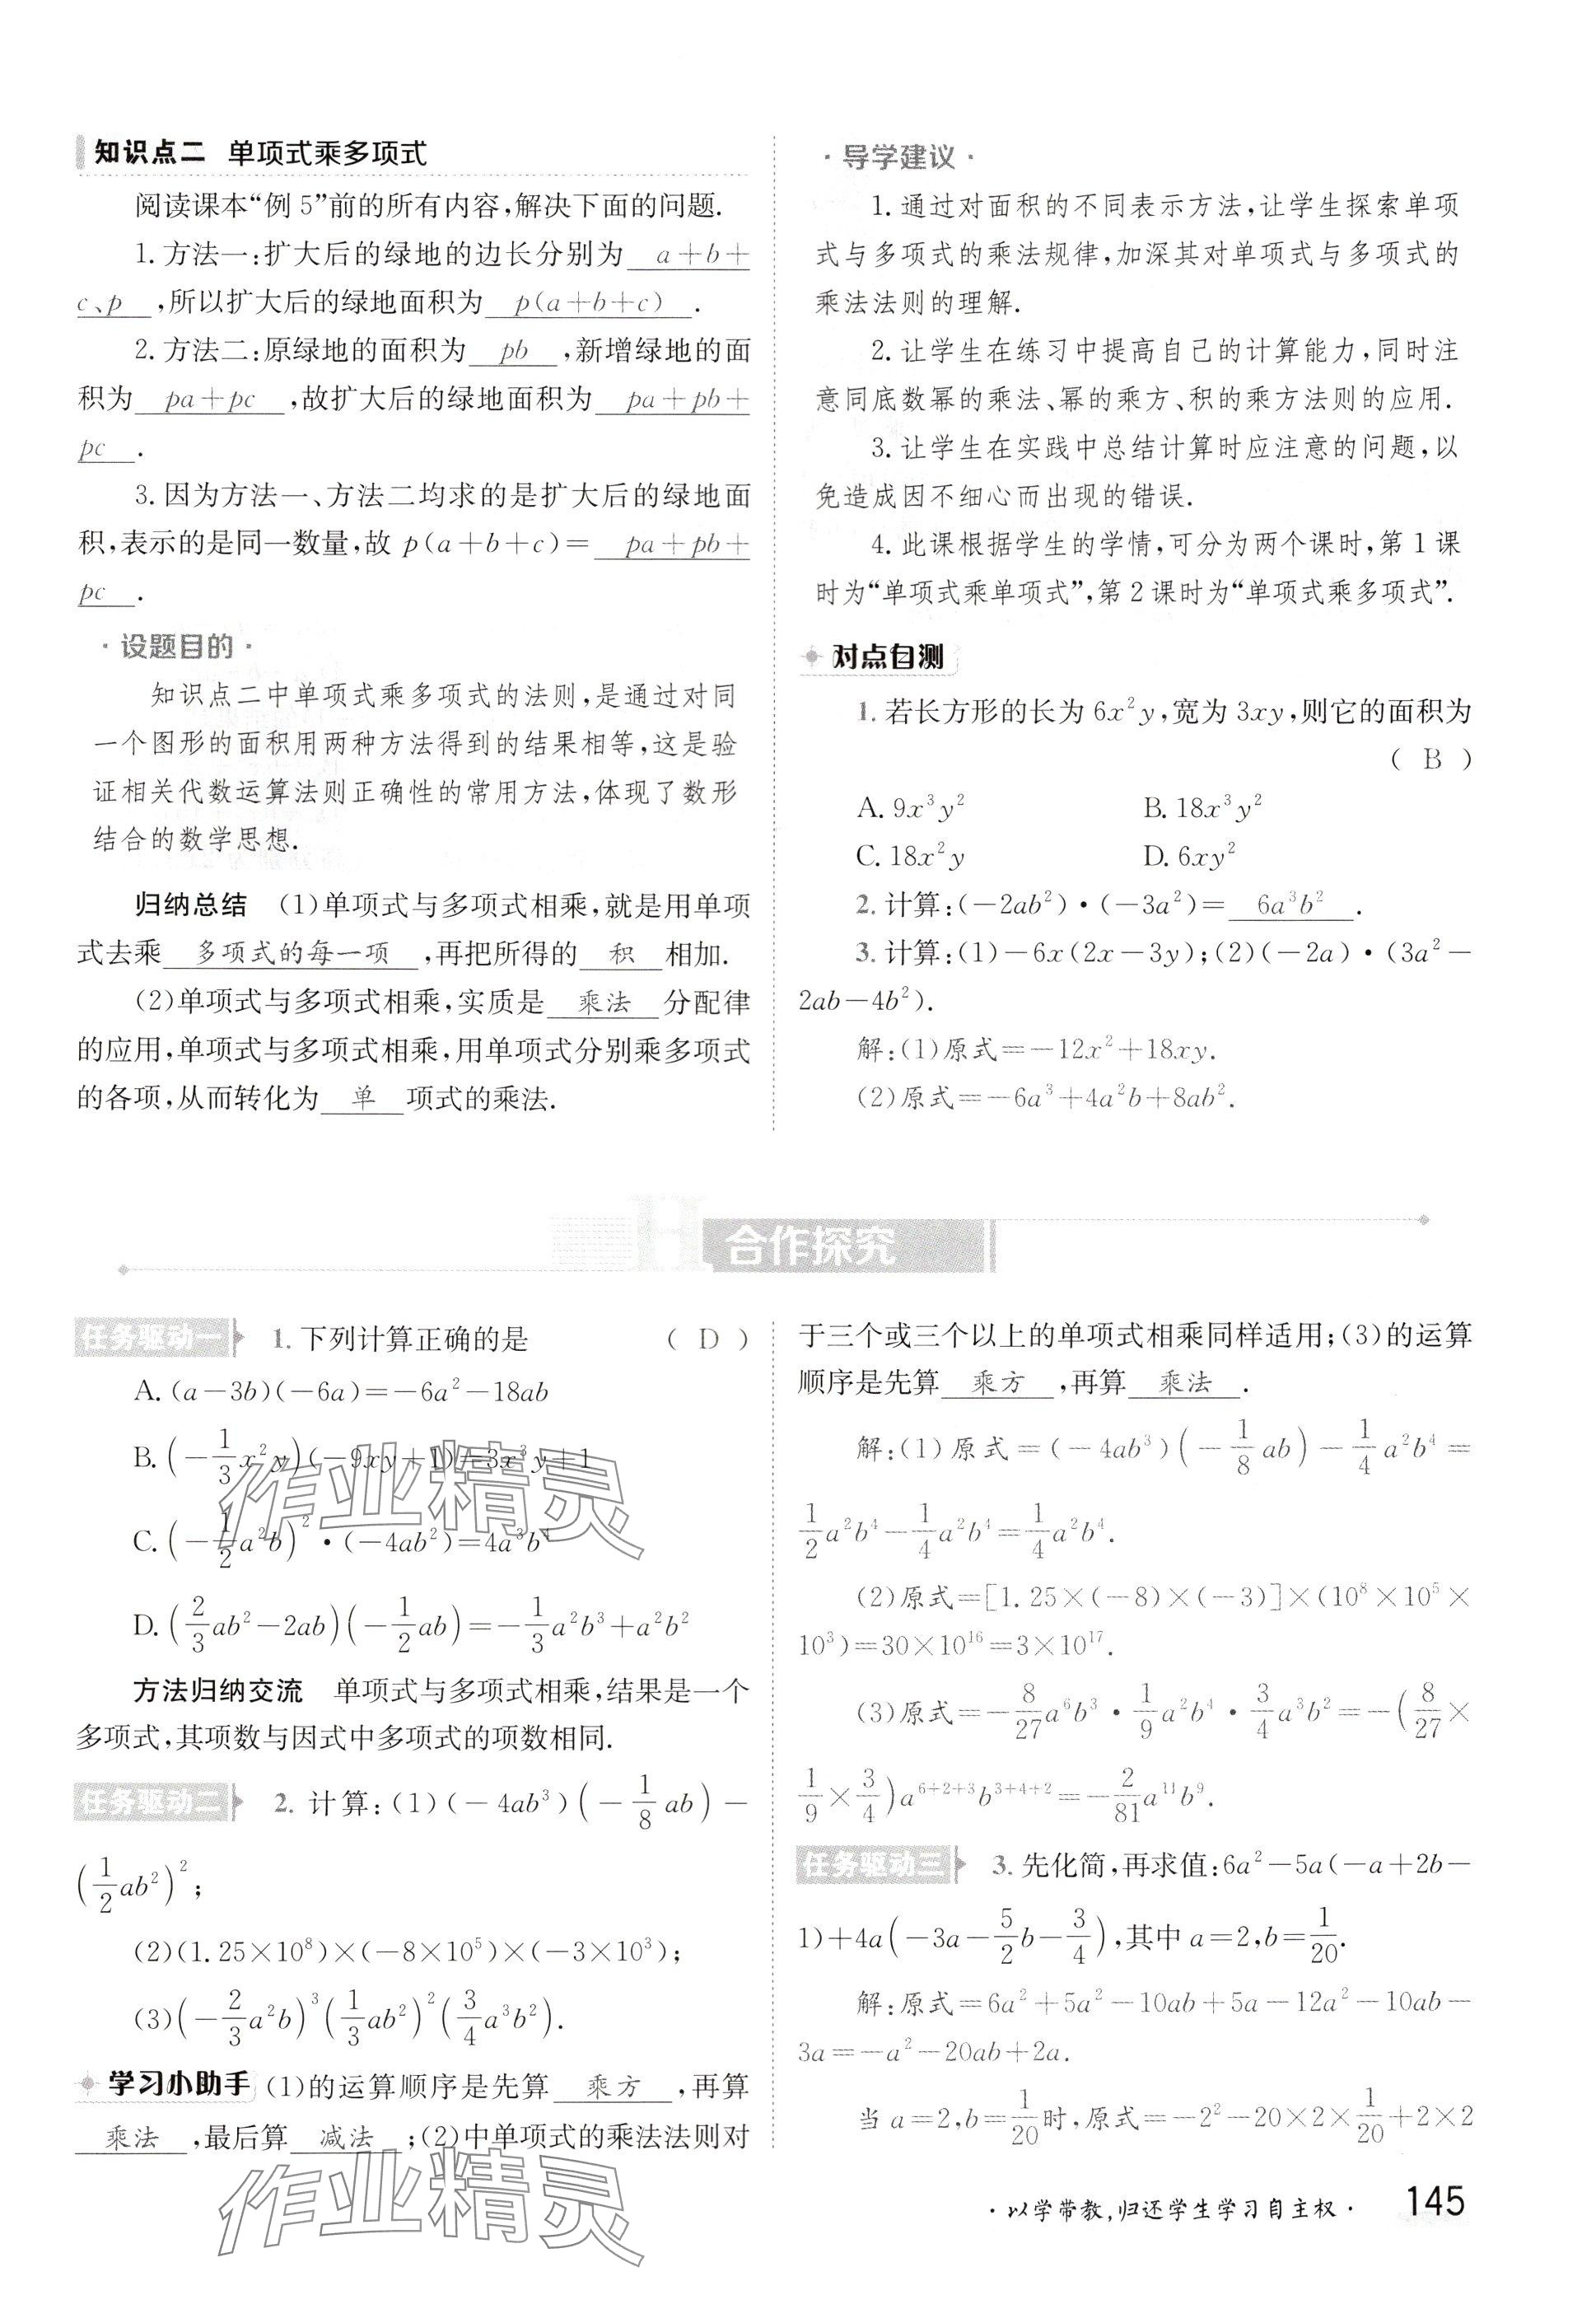 知识点二 单项式乘多项式
阅读课本“例 5”前的所有内容,解决下面的问题.
1. 方法一:扩大后的绿地的边长分别为 a+b+
c、p ,所以扩大后的绿地面积为 p(a+b+c) .
2. 方法二:原绿地的面积为 pb ,新增绿地的面
积为 pa+pc ,故扩大后的绿地面积为 pa+pb+
pc .
3. 因为方法一、方法二均求的是扩大后的绿地面
积,表示的是同一数量,故 p(a+b+c)= pa+pb+
pc .
· 设题目的 ·
知识点二中单项式乘多项式的法则,是通过对同
一个图形的面积用两种方法得到的结果相等,这是验
证相关代数运算法则正确性的常用方法,体现了数形
结合的数学思想.
归纳总结 (1)单项式与多项式相乘,就是用单项
式去乘 多项式的每一项 ,再把所得的 积 相加.
(2)单项式与多项式相乘,实质是 乘法 分配律
的应用,单项式与多项式相乘,用单项式分别乘多项式
的各项,从而转化为 单 项式的乘法.
· 导学建议 ·
1. 通过对面积的不同表示方法,让学生探索单项
式与多项式的乘法规律,加深其对单项式与多项式的
乘法法则的理解.
2. 让学生在练习中提高自己的计算能力,同时注
意同底数幂的乘法、幂的乘方、积的乘方法则的应用.
3. 让学生在实践中总结计算时应注意的问题,以
免造成因不细心而出现的错误.
4. 此课根据学生的学情,可分为两个课时,第 1 课
时为“单项式乘单项式”,第 2 课时为“单项式乘多项式”.
对点自测
1. 若长方形的长为 6x²y,宽为 3xy,则它的面积为
( B )
A. 9x³y² B. 18x³y²
C. 18x²y D. 6xy²
2. 计算:(−2ab²)·(−3a²)= 6a³b² .
3. 计算:(1)−6x(2x−3y);(2)(−2a)·(3a²−
2ab−4b²).
解:(1)原式=−12x²+18xy.
(2)原式=−6a³+4a²b+8ab².
H 合作探究
任务驱动一 1. 下列计算正确的是 ( D )
A. (a−3b)(−6a)=−6a²−18ab
B. (−1/3x²y)(−9xy+1)=3x³y+1
C. (−1/2a²b)²·(−4ab²)=4a³b⁴
D. (2/3ab²−2ab)(−1/2ab)=−1/3a²b³+a²b²
方法归纳交流 单项式与多项式相乘,结果是一个
多项式,其项数与因式中多项式的项数相同.
任务驱动二 2. 计算:(1)(−4ab³)(−1/8ab)−
(1/2ab²)²;
(2)(1.25×10⁸)×(−8×10⁵)×(−3×10³);
(3)(−2/3a²b)³(1/3ab²)²(3/4a³b²).
学习小助手 (1)的运算顺序是先算 乘方 ,再算
乘法 ,最后算 减法 ;(2)中单项式的乘法法则对
于三个或三个以上的单项式相乘同样适用;(3)的运算
顺序是先算 乘方 ,再算 乘法 .
解:(1)原式=(−4ab³)(−1/8ab)−1/4a²b⁴=
1/2a²b⁴−1/4a²b⁴=1/4a²b⁴.
(2)原式=[1.25×(−8)×(−3)]×(10⁸×10⁵×
10³)=30×10¹⁶=3×10¹⁷.
(3)原式=−8/27a⁶b³·1/9a²b⁴·3/4a³b²=−(8/27×
1/9×3/4)a⁶⁺²⁺³b³⁺⁴⁺²=−2/81a¹¹b⁹.
任务驱动三 3. 先化简,再求值:6a²−5a(−a+2b−
1)+4a(−3a−5/2b−3/4),其中 a=2,b=1/20.
解:原式=6a²+5a²−10ab+5a−12a²−10ab−
3a=−a²−20ab+2a.
当 a=2,b=1/20时,原式=−2²−20×2×1/20+2×2
作业精灵
作业精灵
· 以学带教,归还学生学习自主权 · 145